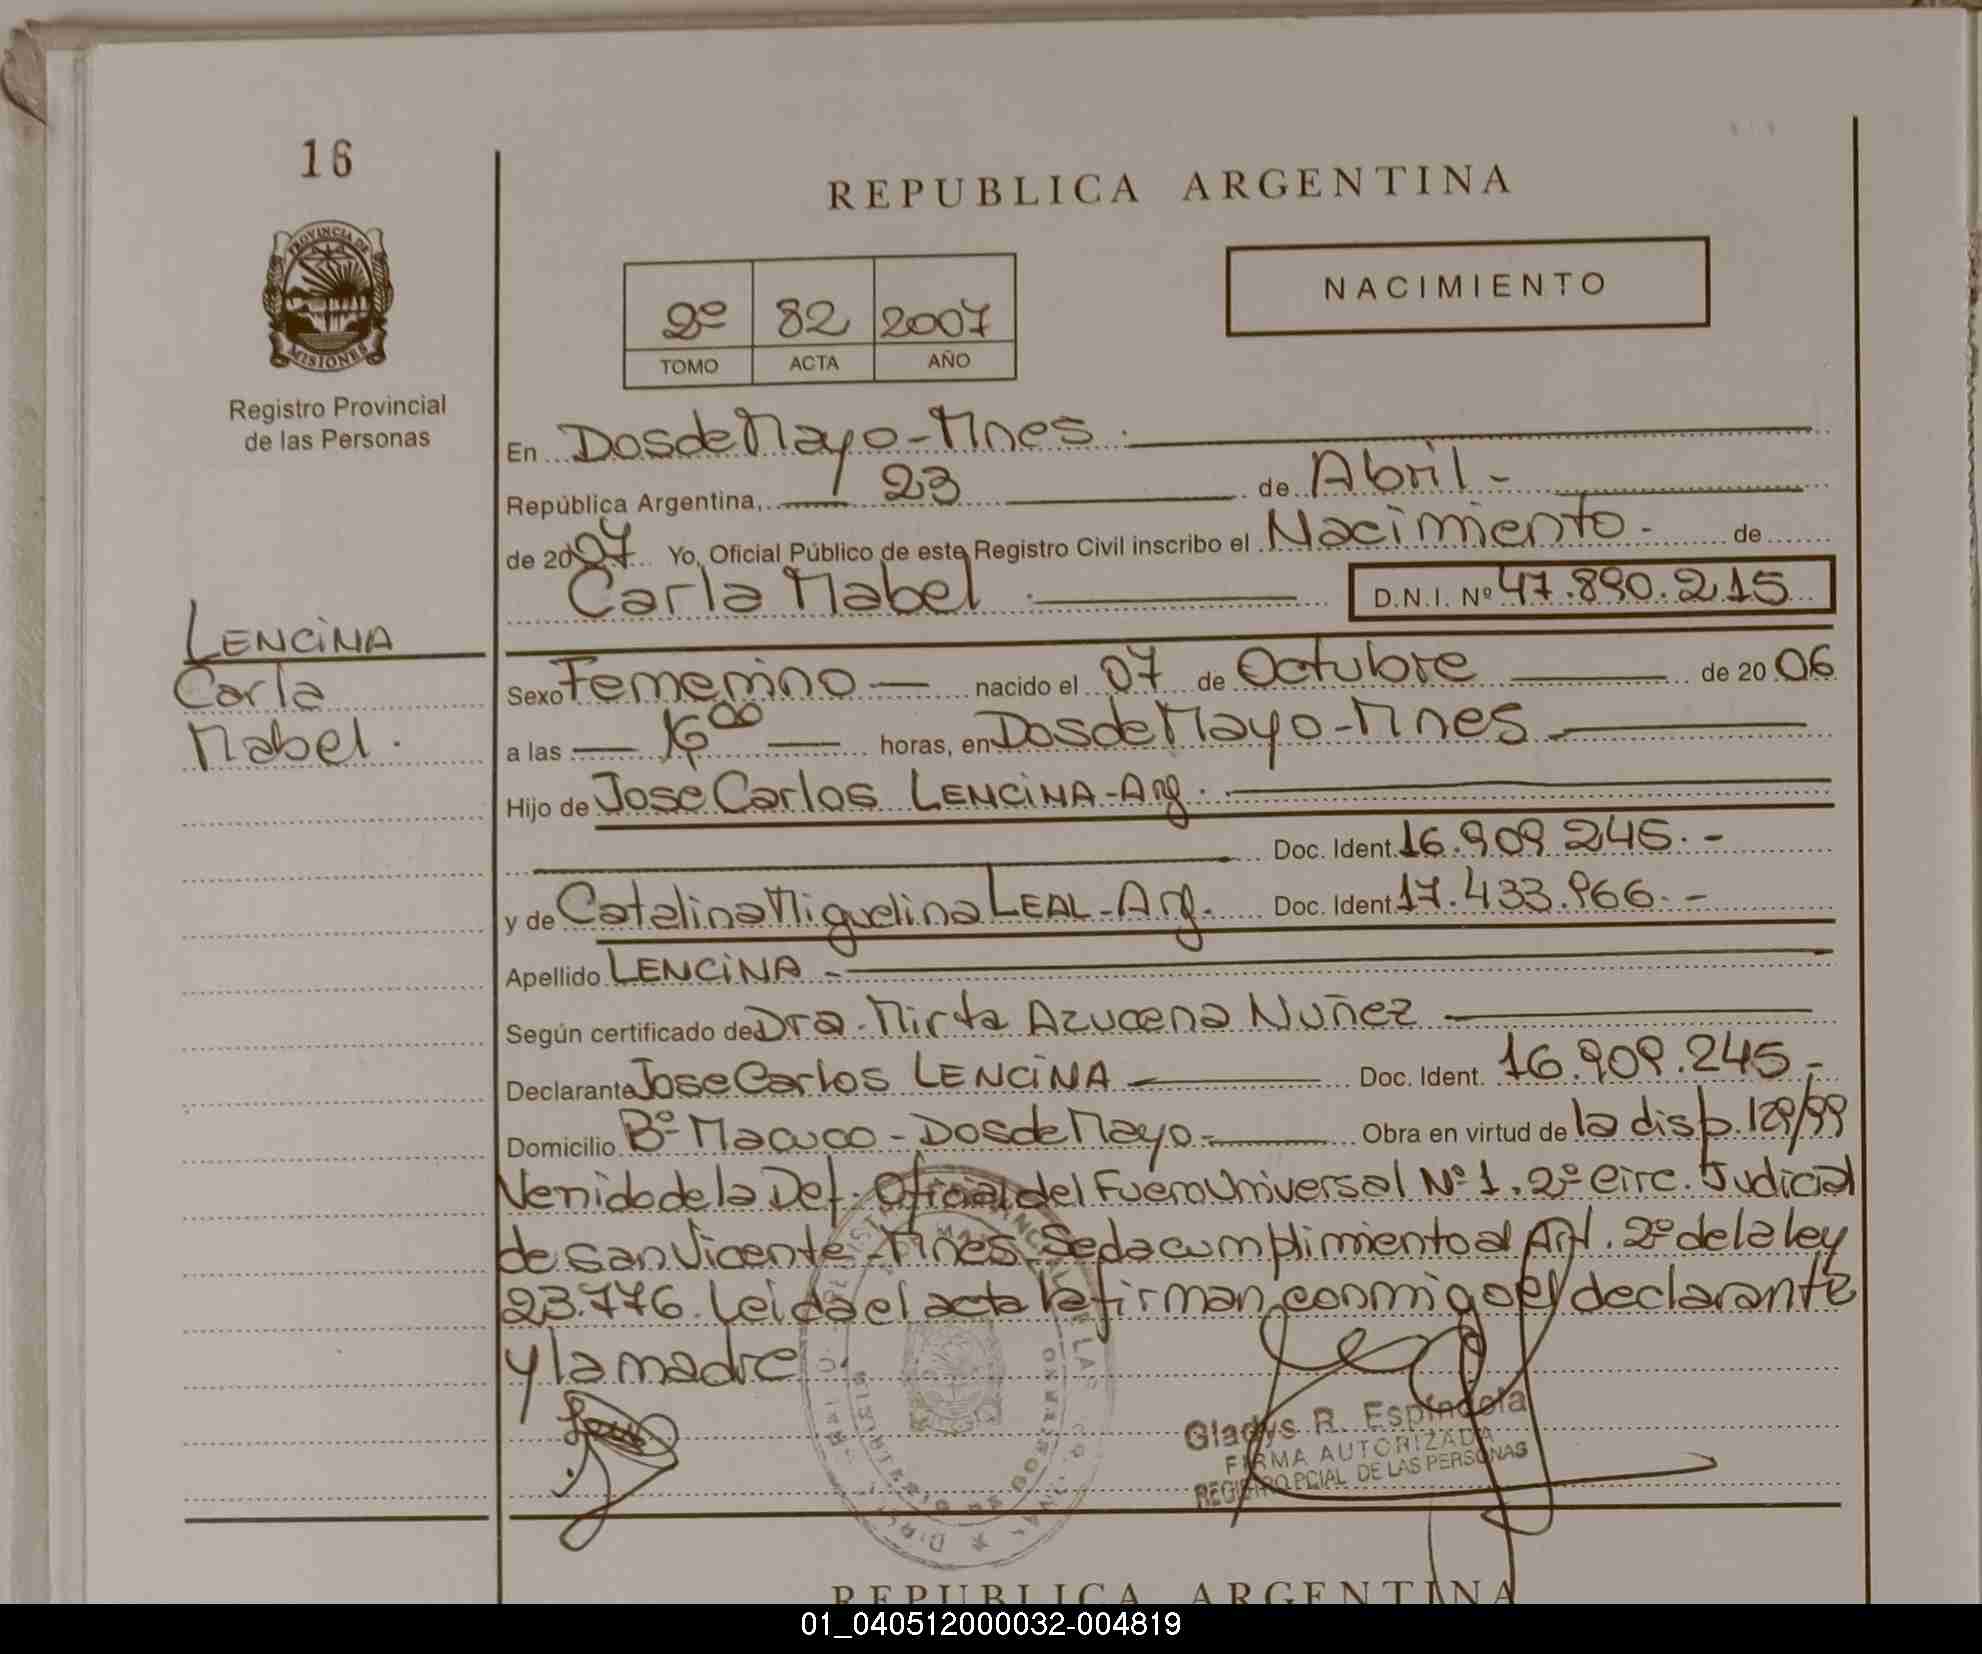 16
REPUBLICA ARGENTINA
PROVINCIA DE
MISIONES
Registro Provincial
de las Personas
NACIMIENTO
2º 82 2007
TOMO ACTA AÑO
En Dos de Mayo - Mnes.
República Argentina, 23 de Abril -
de 2007 Yo, Oficial Público de este Registro Civil inscribo el Nacimiento - de
Carla Mabel D.N.I. Nº 47.890.215
LENCINA
Carla
Mabel.
Sexo Femenino nacido el 07 de Octubre de 2006
a las 16⁰⁰ horas, en Dos de Mayo - Mnes
Hijo de Jose Carlos LENCINA - Arg.
Doc. Ident. 16.909.245.-
y de Catalina Miguelina LEAL - Arg. Doc. Ident. 17.433.966.-
Apellido LENCINA -
Según certificado de Dra. Mirta Azucena Nuñez
Declarante Jose Carlos LENCINA Doc. Ident. 16.909.245.-
Domicilio Bº Macuco - Dos de Mayo - Obra en virtud de la disp. 129/99
Venido de la Def. Oficial del Fuero Universal Nº 1. 2º Circ. Judicial
de San Vicente - Mnes. Se da cumplimiento al Art. 2º de la ley
23.776. Leida el acta la firman conmigo el declarante
y la madre
Gladys R. Espindola
FIRMA AUTORIZADA
REGISTRO PCIAL DE LAS PERSONAS
REPUBLICA ARGENTINA
01_040512000032-004819